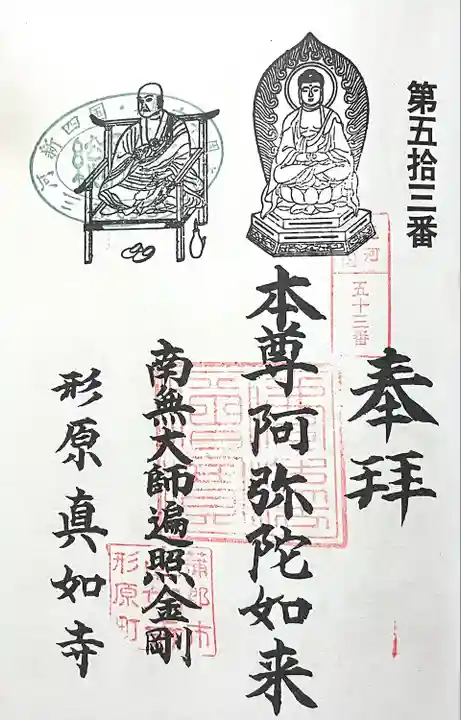 第五拾三番
奉拝
五十三番
本尊阿弥陀如来
南無大師遍照金剛
蒲郡市
形原町
形原真如寺
新四国